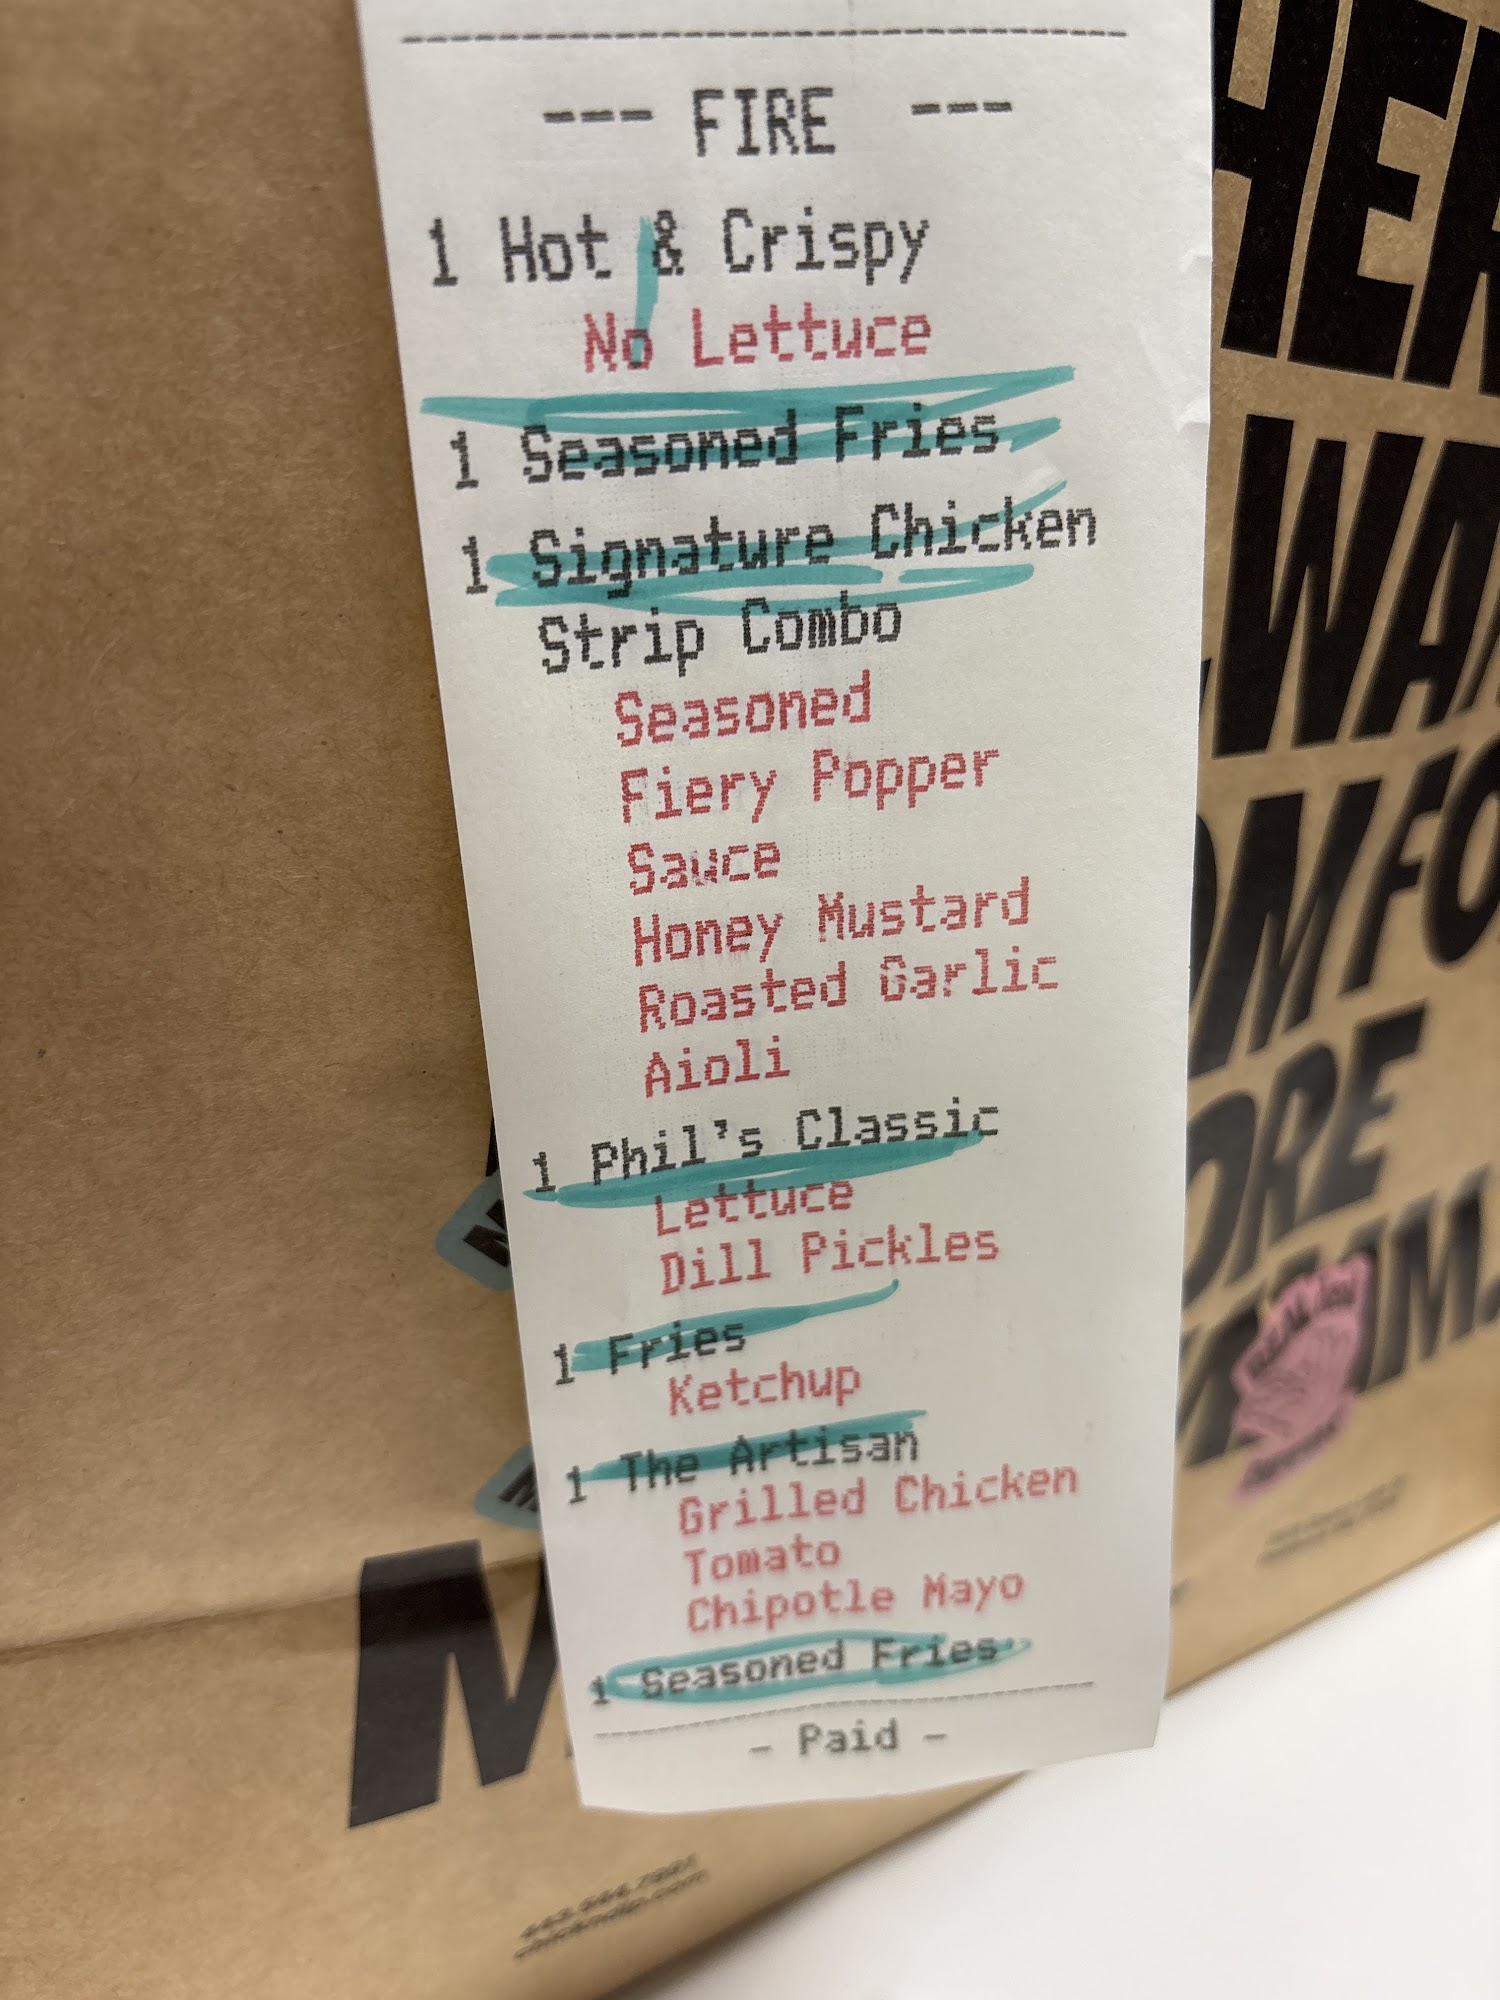 --- FIRE ---
1 Hot & Crispy
No Lettuce
1 Seasoned Fries
1 Signature Chicken
Strip Combo
Seasoned
Fiery Popper
Sauce
Honey Mustard
Roasted Garlic
Aioli
1 Phil's Classic
Lettuce
Dill Pickles
1 Fries
Ketchup
1 The Artisan
Grilled Chicken
Tomato
Chipotle Mayo
1 Seasoned Fries
- Paid -
HER
WA
OMFO
ORE
M